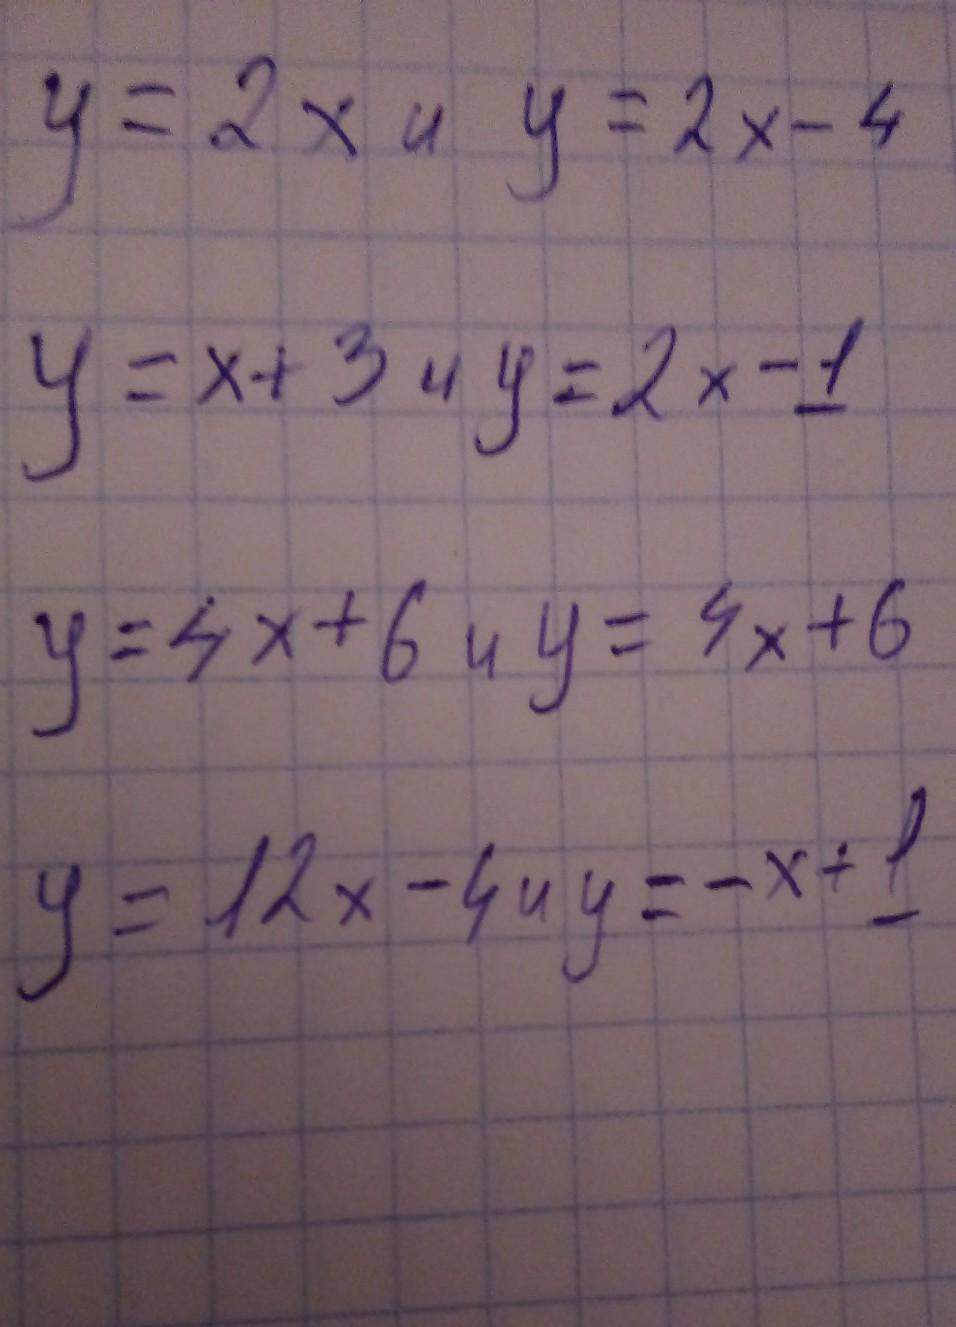 y = 2x и y = 2x - 4
y = x + 3 и y = 2x - 1
y = 4x + 6 и y = 4x + 6
y = 12x - 4 и y = -x + 1